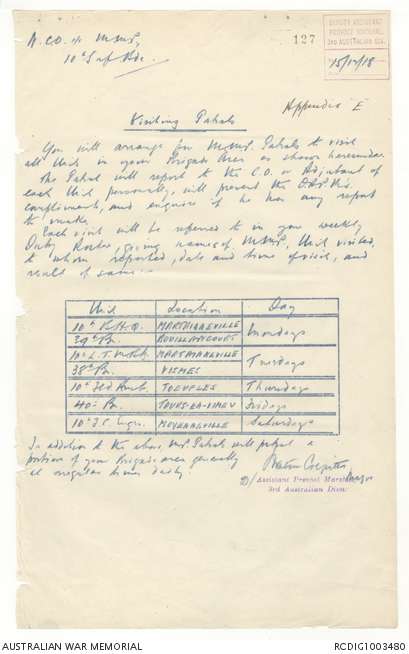 N.C.O. i/c M.M.P,
10th Inf Bde.
127
DEPUTY ASSISTANT
PROVOST MARSHAL,
3RD AUSTRALIAN DIV.
15/12/18
Appendix E
Visiting Patrols
You will arrange for M.M.P. Patrols to visit
all Units in your Brigade Area as shown hereunder.
The Patrol will report to the C.O. or Adjutant of
each Unit personally, will present the D.A.P.M's
compliments, and enquire if he has any report
to make.
Each visit will be referred to in your weekly
Duty Roster, giving names of M.M.P, Unit visited,
to whom reported, date and time of visit, and
result of same.
Unit Location Day
10th B.H.Q. MARTAINNEVILLE Mondays
39th Bn. BOUILLANCOURT
10th L.T.M. Baty MARTAINNEVILLE Tuesdays
38th Bn. VISMES
10th Fld Amb. TOEUFLES Thursdays
40th Bn. TOURS-EN-VIMEU Fridays
10th M.G. MOYENNEVILLE Saturdays
In addition to the above, M.P. Patrols will patrol a
portion of your Brigade area generally
at irregular times daily.
Major
D/ Assistant Provost Marshal
3rd Australian Divn.
AUSTRALIAN WAR MEMORIAL
RCDIG1003480